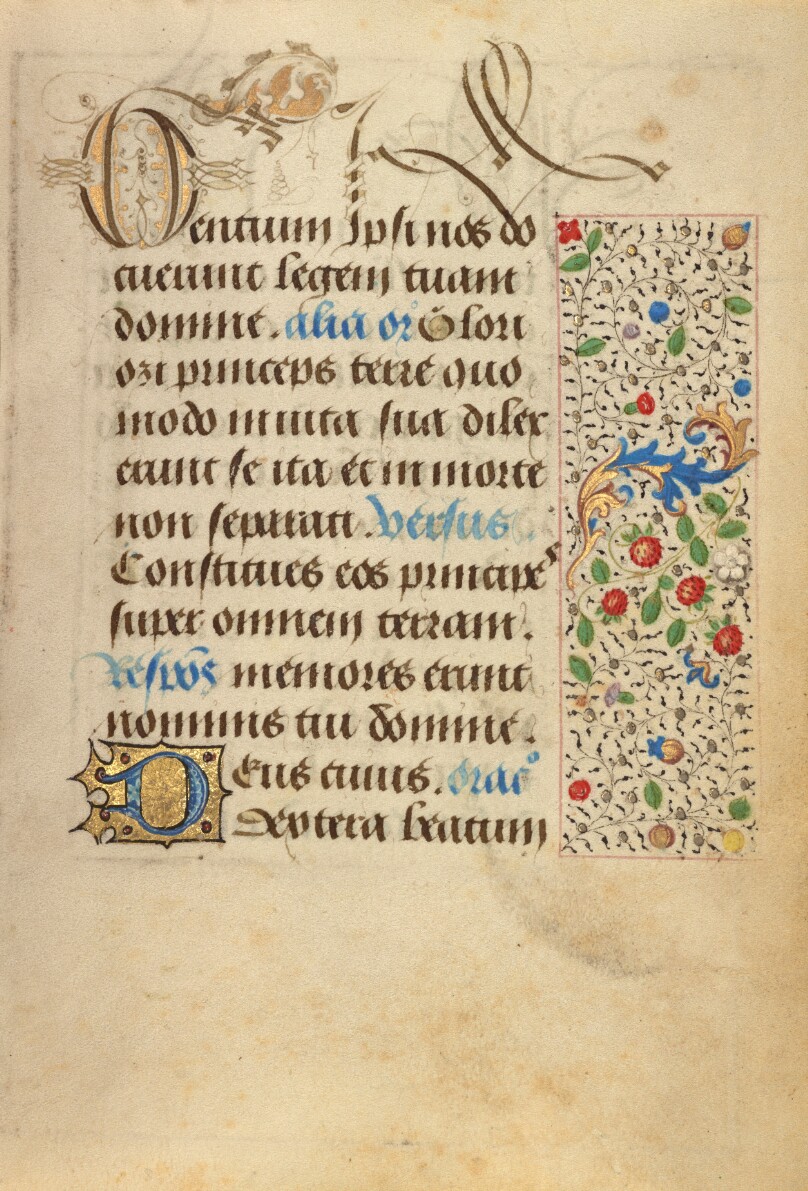 Gentium Ipsi nos do
cuerunt legem tuam
domine. alia or̄ Glori
ozi princeps terre quo
modo in uita sua dilex
erunt se ita et in morte
non separati. versus
Constitues eos principes
super omnem terram.
Respōs memores erunt
nominis tui domine.
Deus cuius. orac̄o
Dextera beatum